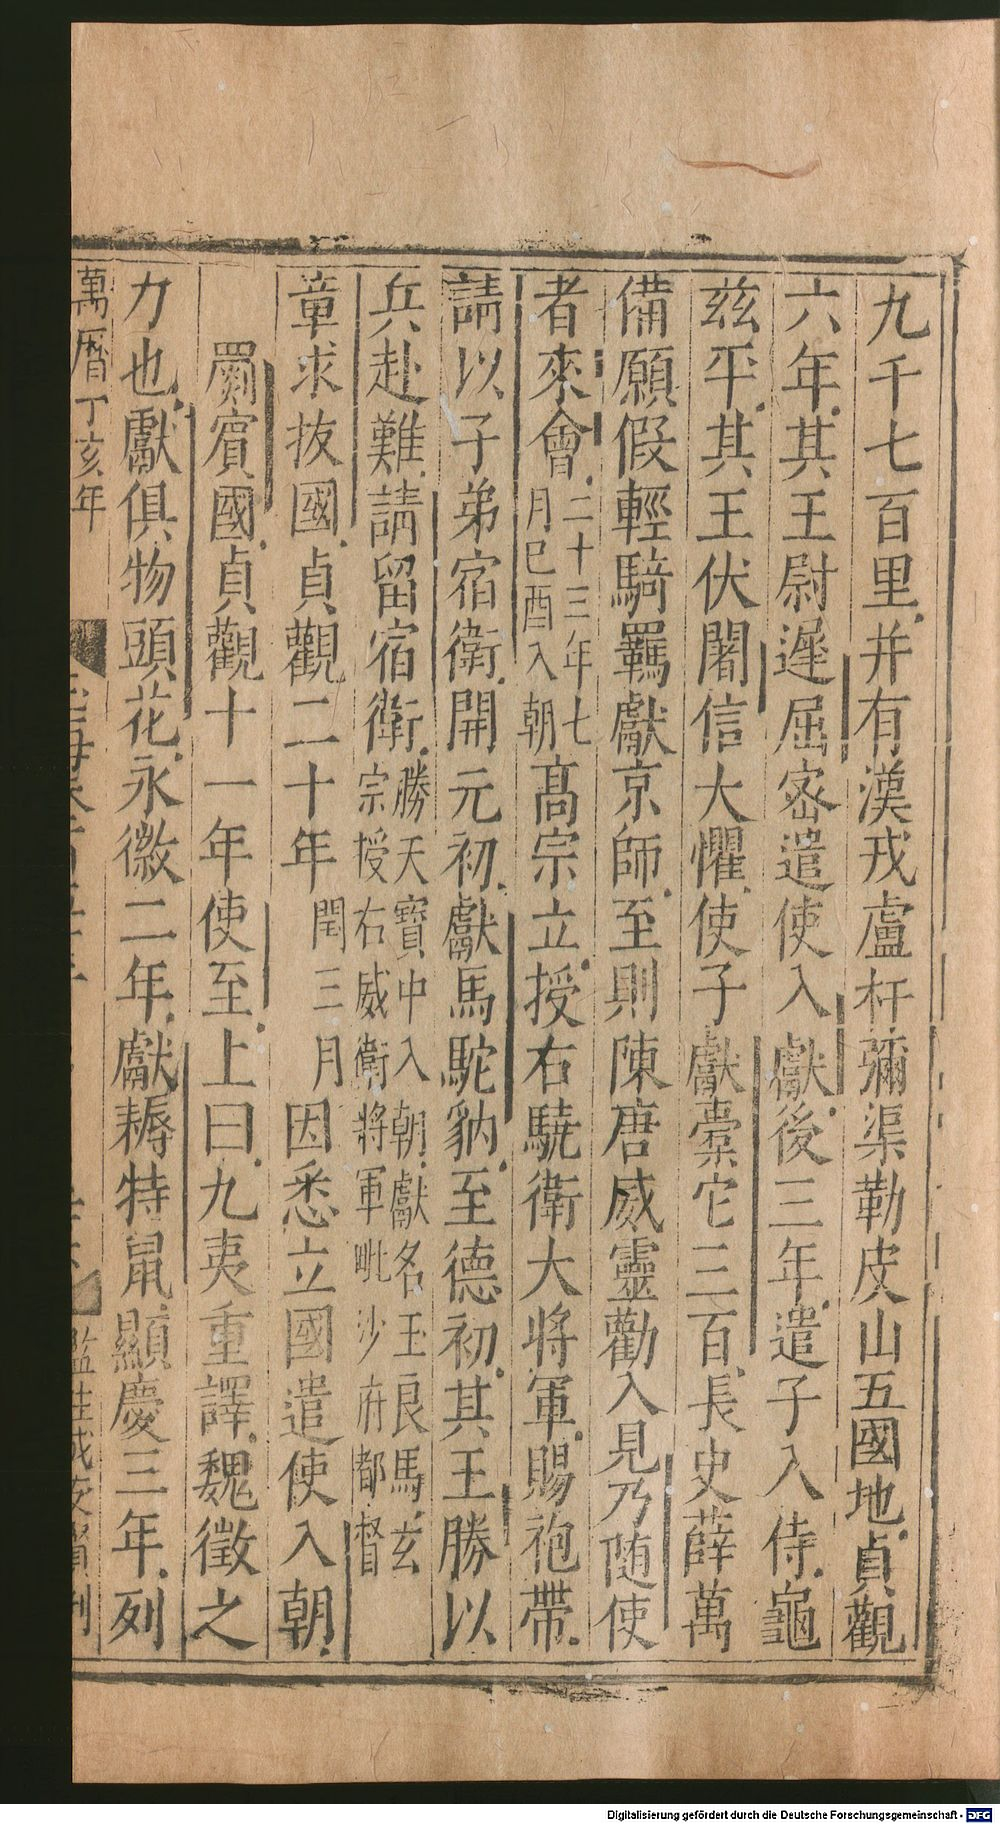 九千七百里并有漢戎盧杆彌渠勒皮山五國地貞觀
六年其王尉遲屈密遣使入獻後三年遣子入侍龜
茲平其王伏闍信大懼使子獻橐它三百長史薛萬
備願假輕騎羈獻京師至則陳唐威靈勸入見乃隨使
者來會二十三年七月己酉入朝高宗立授右驍衛大將軍賜袍帶
請以子弟宿衛開元初獻馬駝豽至德初其王勝以
兵赴難請留宿衛勝天寶中入朝獻名玉良馬玄宗授右威衛將軍毗沙府都督
章求拔國貞觀二十年閏三月因悉立國遣使入朝
罽賓國貞觀十一年使至上曰九夷重譯魏徵之
力也獻俱物頭花永徽二年獻耨特鼠顯慶三年列
萬曆丁亥年
Digitalisierung gefördert durch die Deutsche Forschungsgemeinschaft - DFG